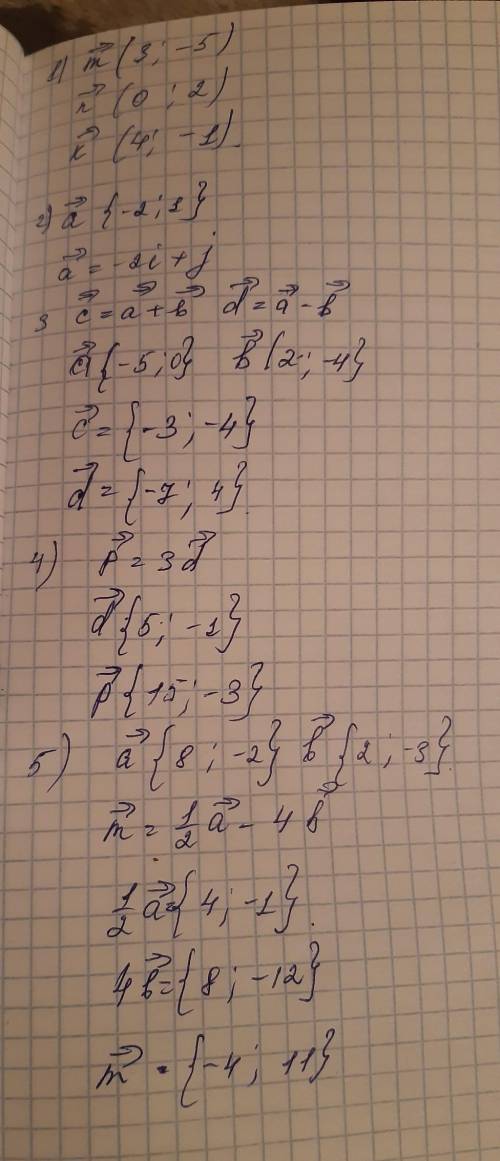 1) m⃗ (3; -5)
n⃗ (0; 2)
k⃗ (4; -1).
2) a⃗ {-2; 1}
a⃗ = -2i + j
3 c⃗ = a⃗ + b⃗ d⃗ = a⃗ - b⃗
a⃗ {-5; 0} b⃗ {2; -4}
c⃗ = {-3; -4}
d⃗ = {-7; 4}.
4) p⃗ = 3d⃗
d⃗ {5; -1}
p⃗ {15; -3}
5) a⃗ {8; -2} b⃗ {2; -3}.
m⃗ = 1/2 a⃗ - 4b⃗
1/2 a⃗ = {4; -1}.
4b⃗ = {8; -12}
m⃗ = {-4; 11}